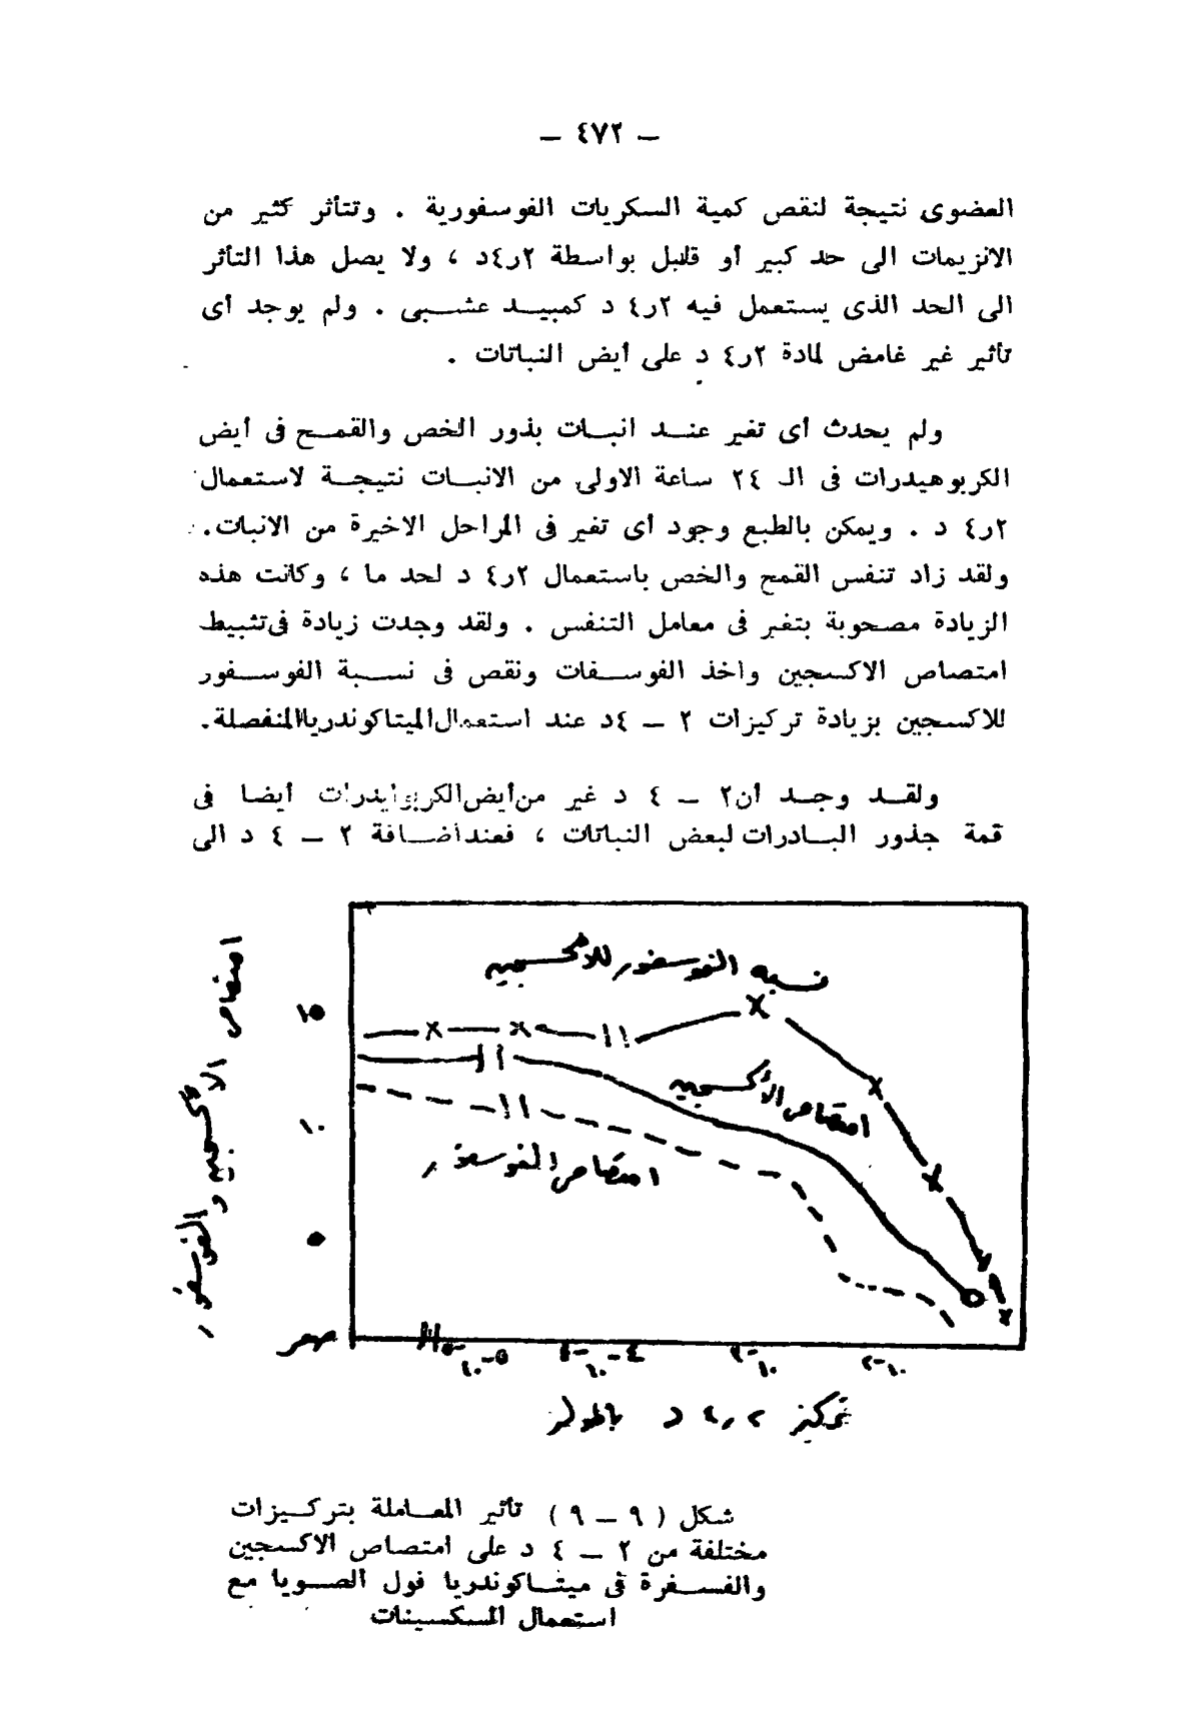 — ٤٧٢ —
العضوى نتيجة لنقص كمية السكريات الفوسفورية . وتتأثر كثير من
الانزيمات الى حد كبير أو قليل بواسطة ٢ر٤د ، ولا يصل هذا التأثر
الى الحد الذى يستعمل فيه ٢ر٤ د كمبيــد عشــبى . ولم يوجد أى
تأثير غير غامض لمادة ٢ر٤ د على أيض النباتات .
ولم يحدث أى تغير عنــد انبــات بذور الخص والقمــح فى أيض
الكربوهيدرات فى الـ ٢٤ ساعة الاولى من الانبــات نتيجــة لاستعمال
٢ر٤ د . ويمكن بالطبع وجود أى تغير فى المراحل الاخيرة من الانبات .
ولقد زاد تنفس القمح والخص باستعمال ٢ر٤ د لحد ما ، وكانت هذه
الزيادة مصحوبة بتغير فى معامل التنفس . ولقد وجدت زيادة فى تثبيط
امتصاص الاكسجين واخذ الفوســفات ونقص فى نســبة الفوســفور
للاكسجين بزيادة تركيزات ٢ — ٤د عند استعمال الميتاكوندريا المنفصلة .
ولقــد وجــد أن ٢ — ٤ د غير من أيض الكربوايدرات أيضا فى
قمة جذور البــادرات لبعض النباتات ، فعند أضــافة ٢ — ٤ د الى
نسبة الفوسفور للأكسجين
امتصاص الأكسجين
امتصاص الفوسفور
امتصاص الأكسجين والفوسفور
١٥
١٠
٥
صفر
١٠-٥
١٠-٤
١٠-٣
١٠-٢
تركيز ٢ر٤ د بالمولر
شكل ( ٩ — ٩ ) تأثير المعــاملة بتركــيزات
مختلفة من ٢ — ٤ د على امتصاص الاكسجين
والفســفرة فى ميتــاكوندريا فول الصــويا مع
استعمال السكسينات